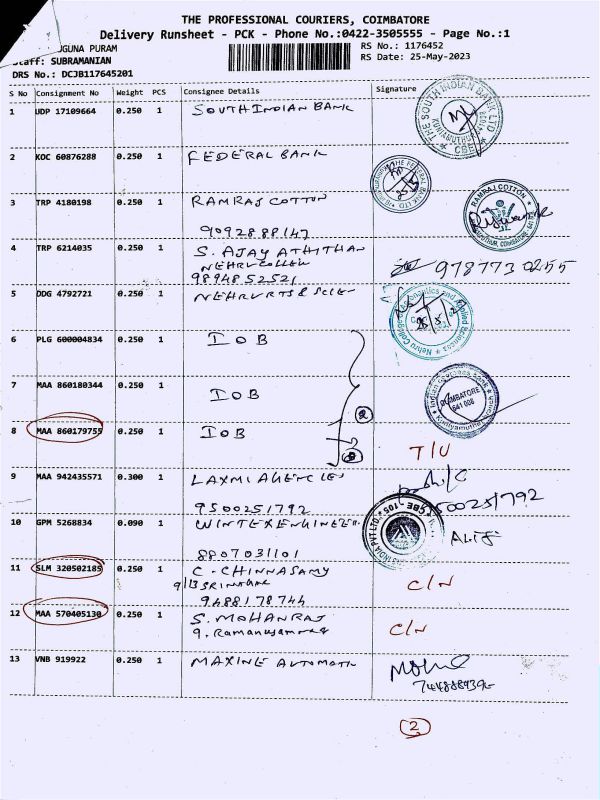 THE PROFESSIONAL COURIERS, COIMBATORE
Delivery Runsheet - PCK - Phone No.:0422-3505555 - Page No.:1
UGUNA PURAM
RS No.: 1176452
Staff: SUBRAMANIAN
RS Date: 25-May-2023
DRS No.: DCJB117645201
S No Consignment No Weight PCS Consignee Details Signature
1 UDP 17109664 0.250 1 SOUTH INDIAN BANK
THE SOUTH INDIAN BANK LTD
CBE
2 KOC 60876288 0.250 1 FEDERAL BANK
THE FEDERAL BANK LTD.
3 TRP 4180198 0.250 1 RAMRAJ COTTON
RAMRAJ COTTON
9092888147
4 TRP 6214035 0.250 1 S. AJAY ATHITHAN
NEHRU COLLEGE
9894852521
978773 0255
5 DDG 4792721 0.250 1 NEHRU RTS & SCIE
Nehru College of Aeronautics and Applied Sciences
6 PLG 600004834 0.250 1 IOB
7 MAA 860180344 0.250 1 IOB
Indian Overseas Bank
COIMBATORE
641 008
8 MAA 860179755 0.250 1 IOB
T/U
9 MAA 942435571 0.300 1 LAXMI AGENCIES
9500251792
9500251792
10 GPM 5268834 0.090 1 WINTEX ENGINEER
8807031101
INDIA PVT LTD
11 SLM 320502185 0.250 1 C. CHINNASAMY
9/13 SRINAGAR
9488178744
C/N
12 MAA 570405130 0.250 1 S. MOHANRAJ
C/N
13 VNB 919922 0.250 1 MAXINE AUTOMATI
2